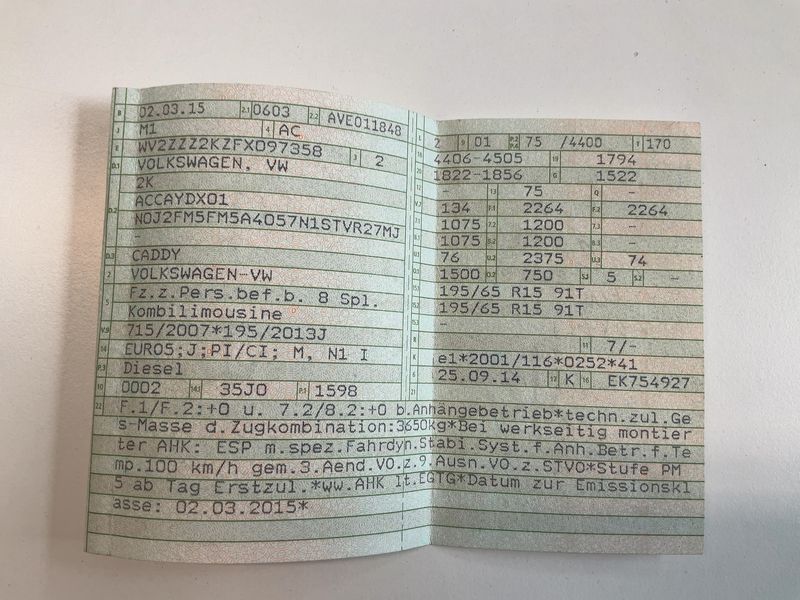 B 02.03.15 2.1 0603 2.2 AVE011848
J M1 4 AC
E WV2ZZZ2KZFX097358 3 2
D.1 VOLKSWAGEN, VW
2K
ACCAYDX01
D.2 N0J2FM5FM5A4057N1STVR27MJ
-
D.3 CADDY
2 VOLKSWAGEN-VW
5 Fz.z.Pers.bef.b. 8 Spl.
Kombilimousine
V.9 715/2007*195/2013J
14 EURO5;J;PI/CI; M, N1 I
P.3 Diesel
10 0002 14.1 35J0 P.1 1598
L 2 9 01 P.2 P.4 75 /4400 T 170
18 4406-4505 19 1794
20 1822-1856 G 1522
12 - 13 75 Q -
V.7 134 F.1 2264 F.2 2264
7.1 1075 7.2 1200 7.3 -
8.1 1075 8.2 1200 8.3 -
U.1 76 U.2 2375 U.3 74
O.1 1500 O.2 750 S.1 5 S.2 -
15.1 195/65 R15 91T
15.2 195/65 R15 91T
15.3 -
R 11 7/-
K e1*2001/116*0252*41
6 25.09.14 17 K 16 EK754927
21
22 F.1/F.2:+0 u. 7.2/8.2:+0 b.Anhängebetrieb*techn.zul.Ge
s-Masse d.Zugkombination:3650kg*Bei werkseitig montier
ter AHK: ESP m.spez.Fahrdyn.Stabi.Syst.f.Anh.Betr.f.Te
mp.100 km/h gem.3.Aend.VO.z.9.Ausn.VO.z.STVO*Stufe PM
5 ab Tag Erstzul.*ww.AHK lt.EGTG*Datum zur Emissionskl
asse: 02.03.2015*